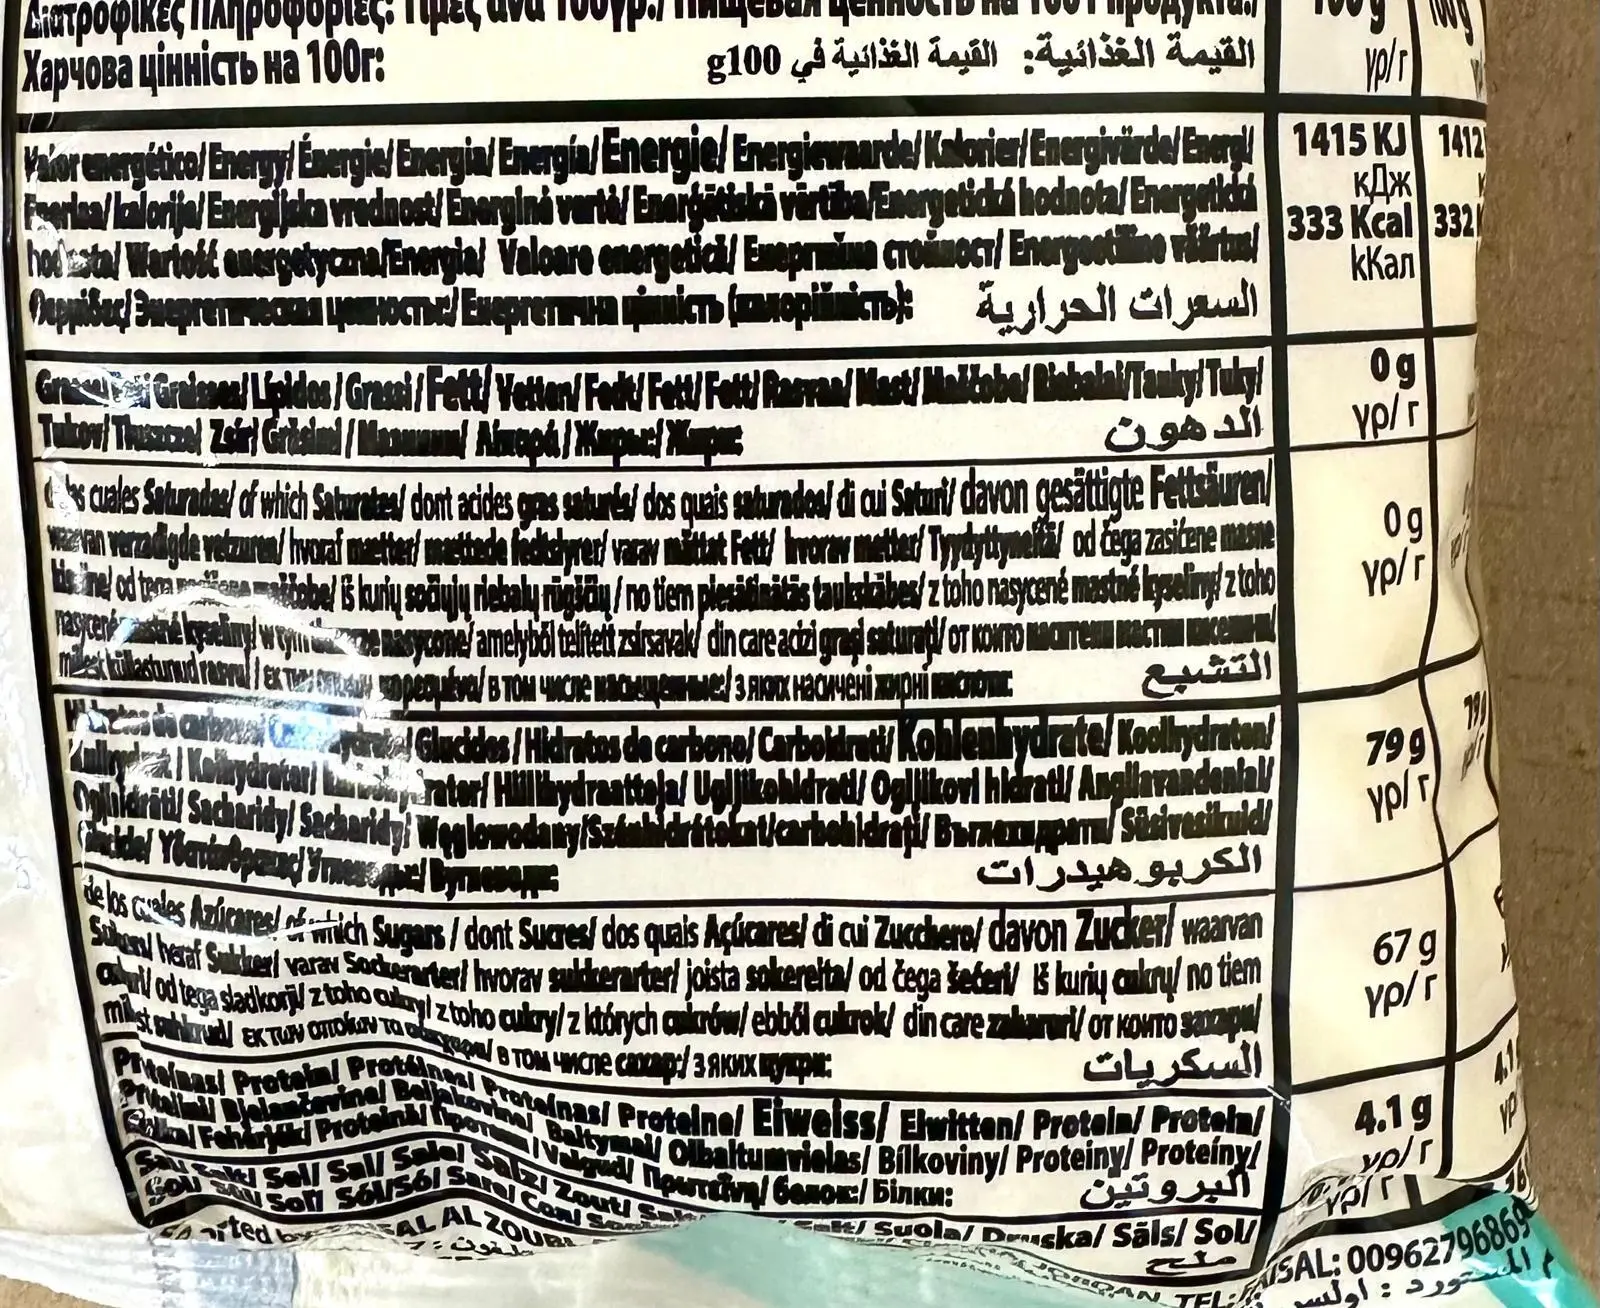 Διατροφικές Πληροφορίες: Τιμές ανά 100γρ./ Пищевая ценность на 100 г продукта:/ 100 g 100 g
Харчова цінність на 100г: القيمة الغذائية: القيمة الغذائية في g100 γρ/г
Valor energético/ Energy/ Énergie/ Energia/ Energía/ Energie/ Energiewaarde/ Kalorier/ Energivärde/ Energi/ 1415 KJ 1412
Energiaa/ kalorije/ Energijska vrednost/ Energinė vertė/ Enerģētiskā vērtība/Energetická hodnota/ Energetická кДж
hodnota/ Wartość energetyczna/Energia/ Valoare energetică/ Енергийна стойност/ Energeetiline väärtus/ 333 Kcal 332
Θερμίδες/ Энергетическая ценность:/ Енергетична цінність (калорійність): السعرات الحرارية kКал
Grasas/ Graisses/ Lípidos / Grassi / Fett/ Vetten/ Fedt/ Fett/ Fett/ Rasvaa/ Mast/ Maščobe/ Riebalai/Tauky/ Tuky/ 0 g
Tukov/ Tłuszcze/ Zsír/ Grăsimi / Мазнини/ Λιπαρά / Жиры:/ Жири: الدهون γρ/ г
de las cuales Saturadas/ of which Saturates/ dont acides gras saturés/ dos quais saturados/ di cui Saturi/ davon gesättigte Fettsäuren/ 0 g
waarvan verzadigde vetzuren/ hvoraf mætter/ mættede fedtsyrer/ varav mättat Fett/ hvorav metter/ Tyydyttyneitä/ od čega zasićene masne γρ/ г
kiseline/ od tega maščobe/ iš kurių sočiųjų riebalų rūgščių / no tiem piesātinātās taukskābes/ z toho nasycené mastné kyseliny/ z toho
nasycené mastné kyseliny/ w tym nasycone/ amelyből telített zsírsavak/ din care acizi grași saturați/ от които наситени мастни киселини/
millest küllastunud rasvu/ / εκ των οποίων κορεσμένα/ в том числе насыщенные:/ з яких насичені жирні кислоти: التشبع
Hidratos de carbono/ / Glucides / Hidratos de carbono/ Carboidrati/ Kohlenhydrate/ Koolhydraten/ 79 g 79g
Kulhydrat / Kolhydrater/ / Hiilihydraatteja/ Ugljikohidrati/ Ogljikovi hidrati/ Angliavandeniai/ γρ/ г
Ogļhidrāti/ Sacharidy/ Sacharidy/ Węglowodany/Szénhidrátokat/carbohidrați/ Въглехидрати/ Süsivesikuid/
Υδατάνθρακες/ Углеводы:/ Вуглеводи: الكربوهيدرات
de los cuales Azúcares/ of which Sugars / dont Sucres/ dos quais Açúcares/ di cui Zucchero/ davon Zucker/ waarvan 67 g
Suikers/ heraf Sukker/ varav Sockerarter/ hvorav sukkerarter/ joista sokereita/ od čega šećeri/ iš kurių cukrų/ no tiem γρ/ г
cukuri/ od tega sladkorji/ z toho cukry/ z toho cukry/ z których cukrów/ ebből cukrok/ din care zaharuri/ от които захари/
millest suhkrud/ εκ των οποίων τα σάκχαρα/ в том числе сахар:/ з яких цукри: السكريات
Proteínas/ Protein/ Protéines/ Proteínas/ Proteine/ Eiweiss/ Eiwitten/ Protein/ Protein/ 4.1 g 4.1
Proteiini/ Bjelančevine/ Beljakovine/ Baltymai/ Olbaltumvielas/ Bílkoviny/ Proteiny/ Proteíny/ γρ/ г
Fehérjék/ Proteină/ Протеин / Valgud/ Πρωτεΐνη/ белок:/ Білки: البروتين
Sal/ Salt/ Sel/ Sal/ Sale/ Salz/ Zout/ Salt/ Suola/ Druska/ Sāls/ Sol/ γρ/ г
Soľ/ Sól/Só/ Sare/ Сол/ ملح
AL ZOUBI TEL: FAISAL: 00962796869